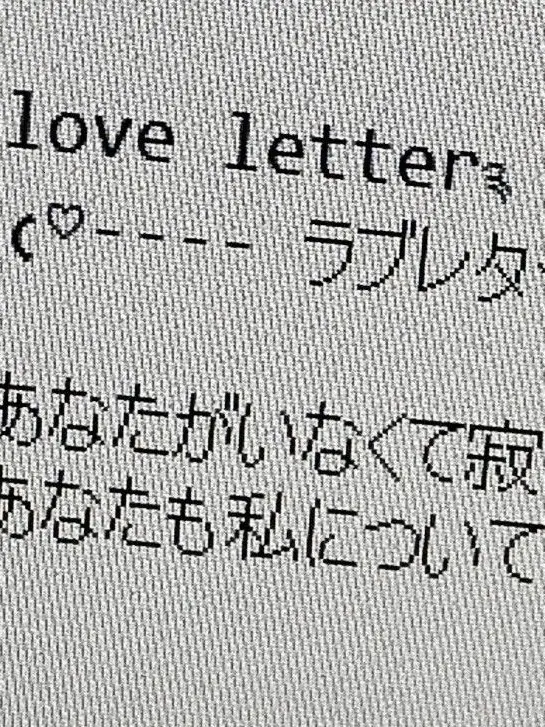 love letter
(♡---- ラブレター
あなたがいなくて寂
あなたも私について